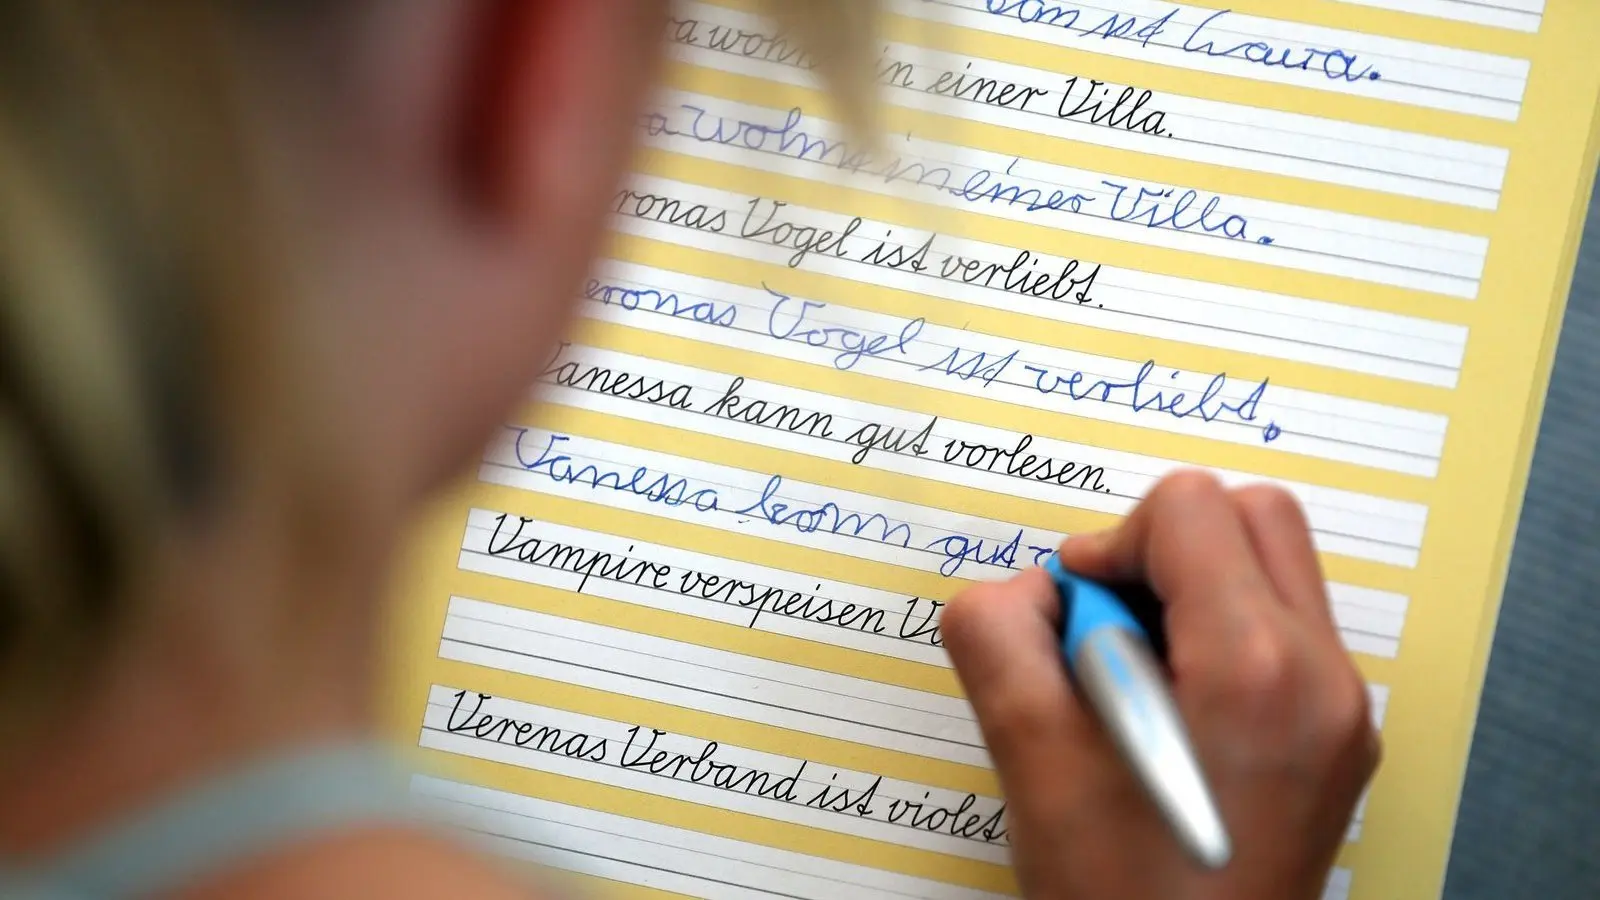 ist Laura.
in einer Villa.
wohnt in einer Villa.
Vogel ist verliebt.
Vogel ist verliebt.
Vanessa kann gut vorlesen.
Vanessa kann gut
Vampire verspeisen
Verenas Verband ist violet.